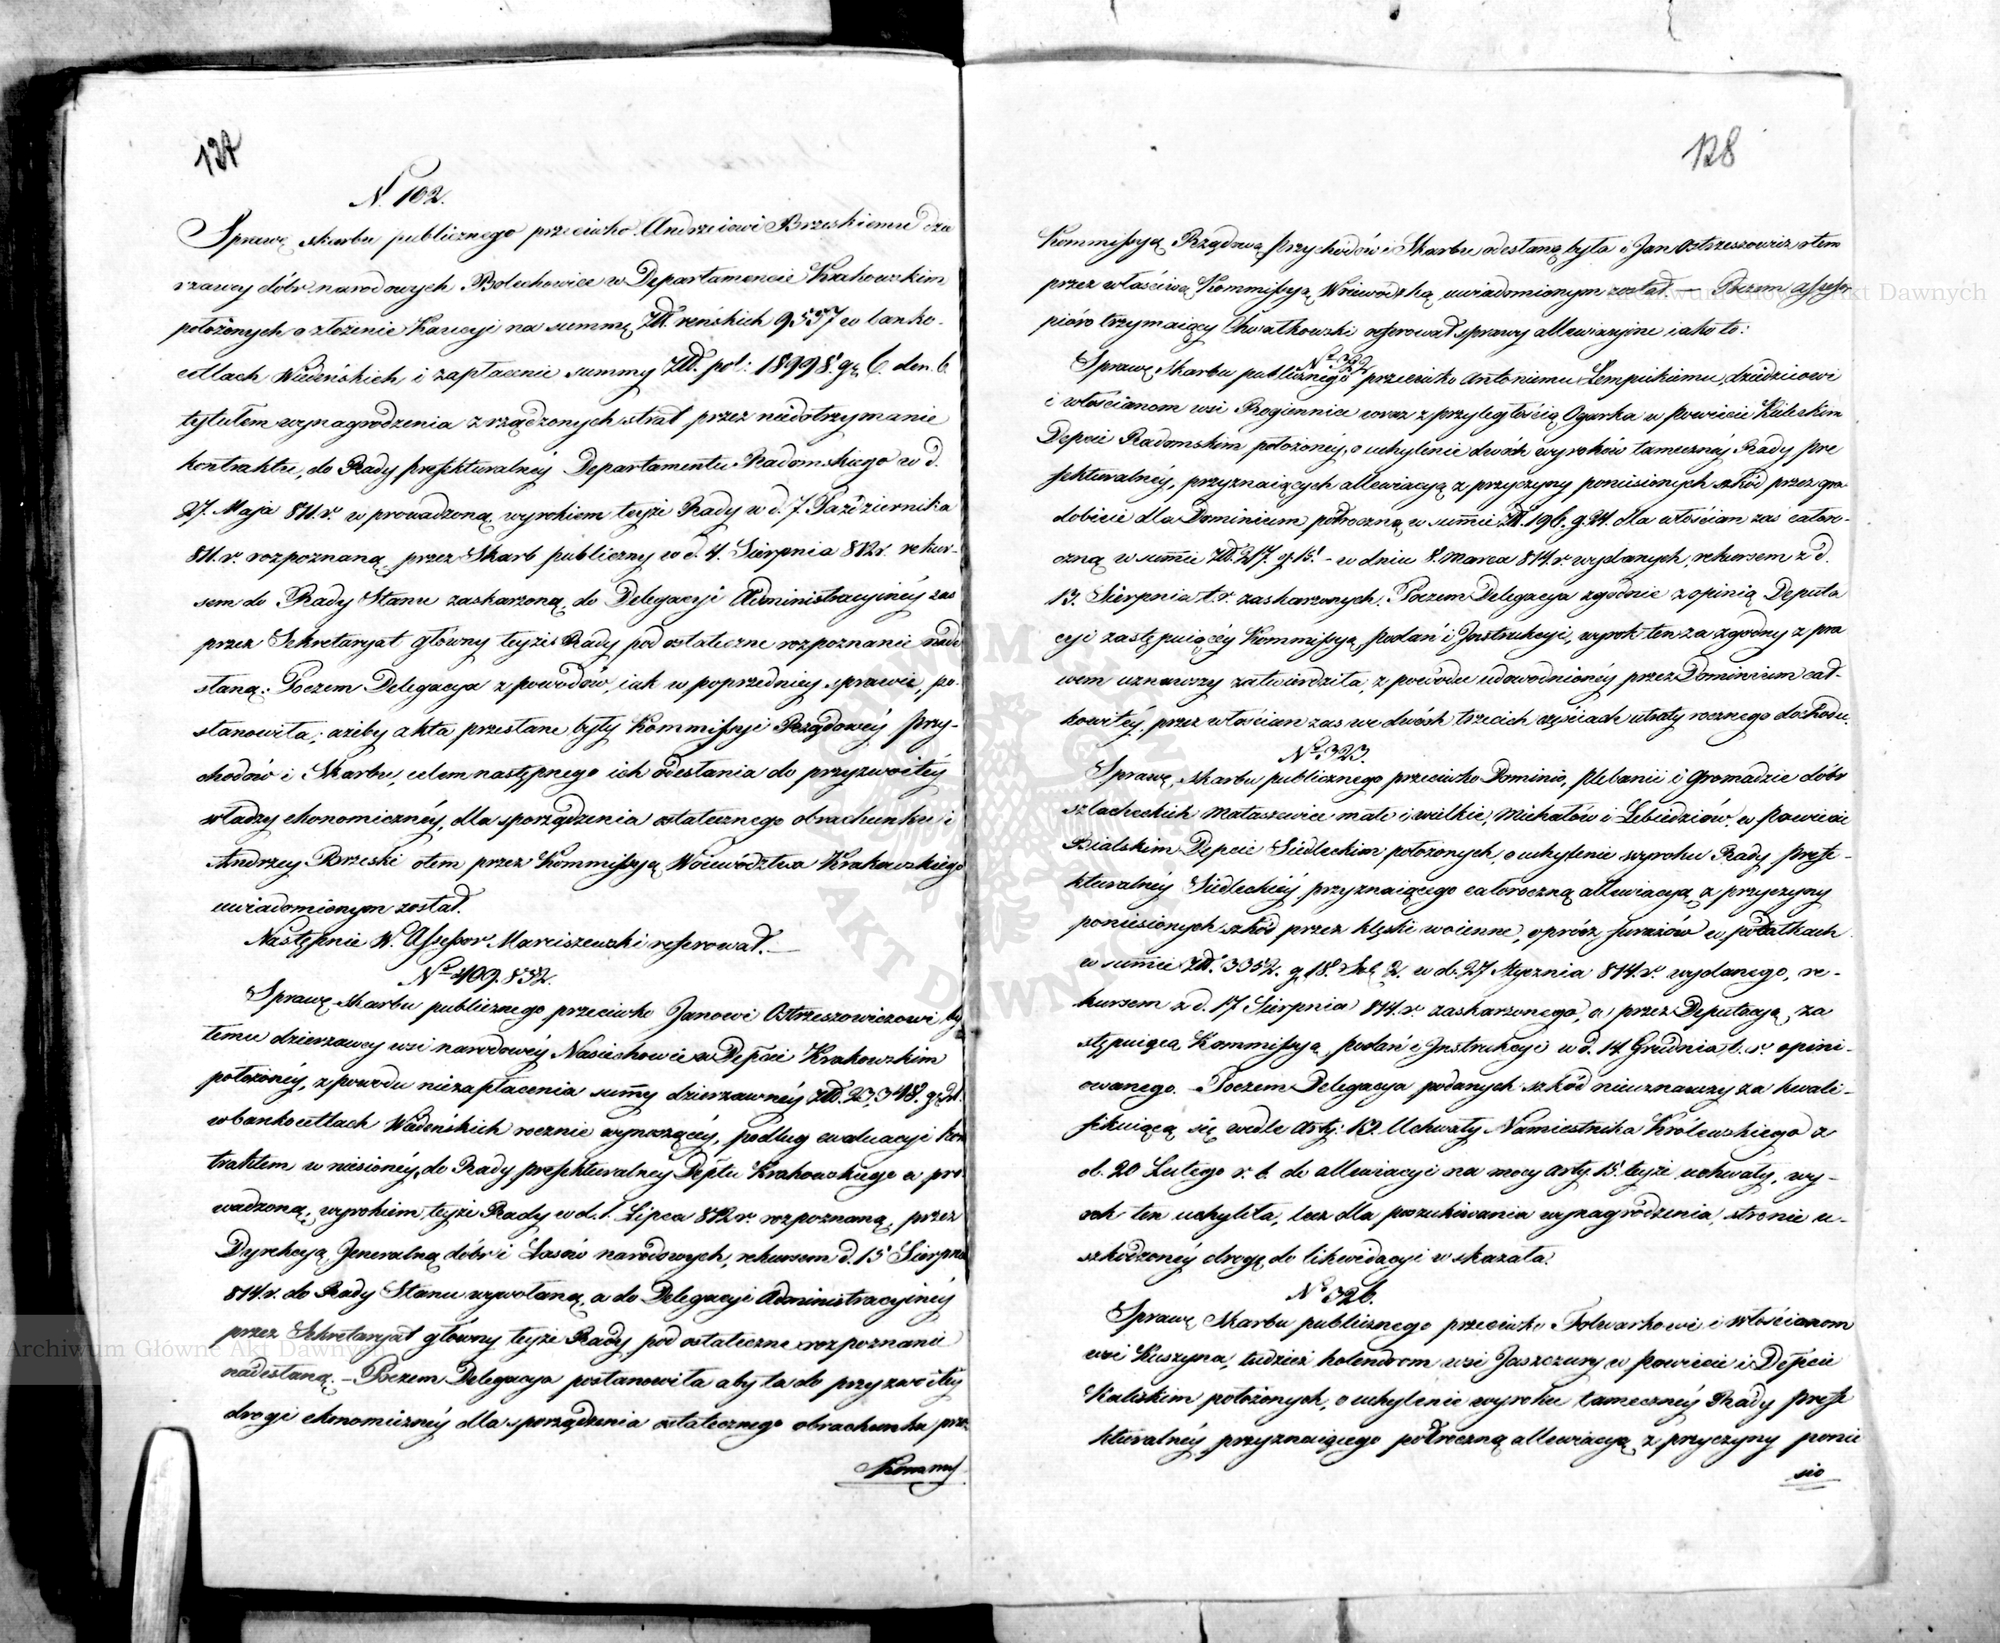 127
N. 102.
Sprawę skarbu publicznego przeciwko Andrzeiowi Brzeskiemu dzie
rzawcy dóbr narodowych Bolechowice w Departamencie Krakowskim
położonych o złożenie Kaucyi na summę Złł. reńskich 9557 w banko-
cetlach Wiedeńskich i zapłacenie summy Złł. pol: 18998. gr. 6. den. 6
tytułem wynagrodzenia zrządzonych strat przez niedotrzymanie
kontraktu, do Rady prefekturalnéy Departamentu Radomskiego w d.
27. Maja 811. r. wprowadzoną, wyrokiem teyże Rady w d. 7. Października
811. r. rozpoznaną, przez Skarb publiczny w d. 4. Sierpnia 812 r. rekur-
sem do Rady Stanu zaskarżoną, do Delegacyi Administracyinéy zas
przez Sekretaryat główny teyże Rady pod ostateczne rozpoznanie nade
słaną: Poczem Delegacya z powodów, iak w poprzedniey sprawie, po-
stanowiła; ażeby akta przesłane były Kommissyi Rządowéy przy-
chodów i Skarbu, celem następnego ich odesłania do przyzwoitéy
władzy ekonomicznéy, dla sporządzenia ostatecznego obrachunku i
Andrzey Brzeski otem przez Kommissyą Woiewództwa Krakowskiego
uwiadomionym został.
Następnie W. Assessor Marciszewski referował. —
No 409. 852.
Sprawę skarbu publicznego przeciwko Janowi Ostrzeszowiczowi by
łemu dzierzawcy wsi narodowéy Nasiechowic w Depcie Krakowskim
położonéy, z powodu niezapłacenia summy dzierzawnéy Złł. 23,348. gr. 21.
w bankocetlach Wiedeńskich rocznie wynoszącéy, podług ewaluacyi kon
traktem wniesionéy, do Rady prefekturalney Deptu Krakowskiego wpro-
wadzoną, wyrokiem teyże Rady w d. 1. Lipca 812 r. rozpoznaną, przez
Dyrekcyą Jeneralną dóbr i Lasów narodowych, rekursem d. 15 Sierpnia
814 r. do Rady Stanu wywołaną, a do Delegacyi Administracyinéy
przez Sekretaryat główny teyże Rady pod ostateczne rozpoznanie
nadesłaną. — Poczem Delegacya postanowiła aby ta do przyzwoitéy
drogi ekonomicznéy dla sporządzenia ostatecznego obrachunku prze
Kommis
128
Kommissyą Rządową Przychodów i Skarbu odesłaną była i Jan Ostrzeszowicz otem
przez właściwą Kommissyą Woiewodzką uwiadomionym został. — Poczem Assessor
pióro trzymaiący Chwatkowski referował sprawy allewiacyine iako to:
No 322
Sprawę Skarbu publicznego przeciwko Antoniemu Łempickiemu, dziedzicowi
i włościanom wsi Rogiennice wraz z przyległością Ogarka w Powiecie Kieleckim
Depcie Radomskim położonéy, o uchylenie dwóch wyroków tamecznéy Rady Pre
fekturalnéy, przyznaiących allewiacyą z przyczyny poniesionych szkód przez gra
dobicie dla Dominium półroczną w summie Złł. 196. g. 24. dla włościan zaś całoro-
czną w summie Złł. 217. g. 15. - w dniu 8. Marca 814. r. wydanych, rekursem z d.
13. Sierpnia t. r. zaskarżonych. Poczem Delegacya zgodnie z opinią Deputa
cyi zastępuiącéy Kommissyą Podań i Instrukcyi, wyrok ten za zgodny z pra
wem uznawszy zatwierdziła, z powodu udowodnionéy przez Dominium cał-
kowitéy, przez włościan zas we dwóch trzecich częściach utraty rocznego dochodu.
No 323.
Sprawę, skarbu publicznego przeciwko Dominio, Plebanii i Gromadzie dóbr
szlacheckich Mataszewice małe i wielkie, Michałów i Lebiedziów, w Powiecie
Bialskim Depcie Siedleckim położonych, o uchylenie wyroku Rady Prefe-
kturalnéy Siedleckiéy przyznaiącego całoroczną allewiacyą, z przyczyny
poniesionych szkód przez klęski woienne, oprócz furażów w podatkach
w summie Złł. 3352. g. 18. Sze. 2. w d. 27 Stycznia 814. r. wydanego, re-
kursem z d. 17 Sierpnia 814. r. zaskarżonego, a przez Deputacyą, za
stępuiącą Kommissyą Podań i Instrukcyi w d. 14 Grudnia t. r. opini-
owanego. - Poczem Delegacya podanych szkód nieuznawszy za kwali-
fikuiącą się wedle Arty: 12. Uchwały Namiestnika Królewskiego z
d. 20 Lutego r. b. do allewiacyi na mocy Arty. 15. teyże uchwały, wy-
rok ten uchyliła, lecz dla poszukiwania wynagrodzenia, stronie u-
szkodzonéy drogę do likwidacyi wskazała.
No 326.
Sprawę Skarbu publicznego przeciwko Folwarkowi i włościanom
wsi Kuszyna, tudzież holendrom wsi Jaszczury w Powiecie i Depcie
Kaliskim położonych, o uchylenie wyroku tamecznéy Rady Prefe
kturalnéy przyznaiącego półroczną allewiacyą z przyczyny ponie
sio
Archiwum Główne Akt Dawnych